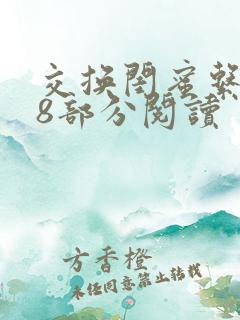 交换闺蜜繫
8部分閱讀
方香橙
未经同意禁止转载